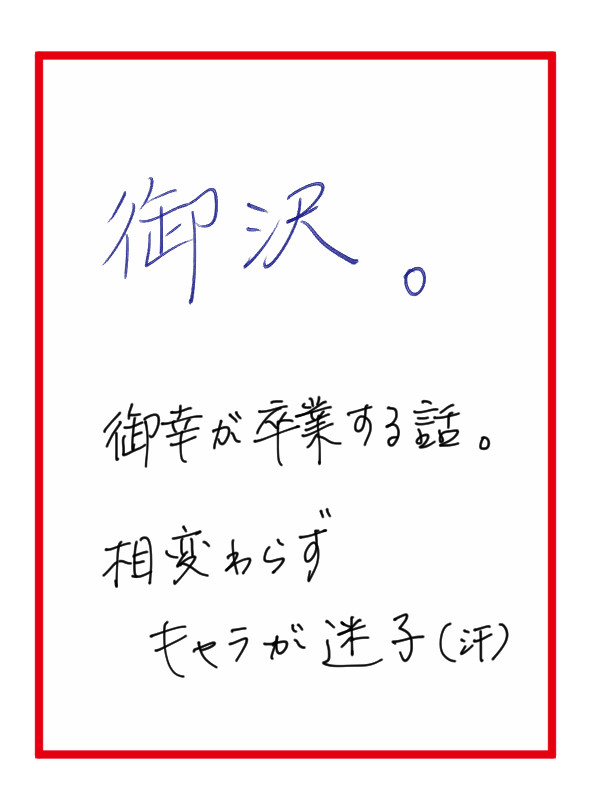 御沢。
御幸が卒業する話。
相変わらず
キャラが迷子(汗)